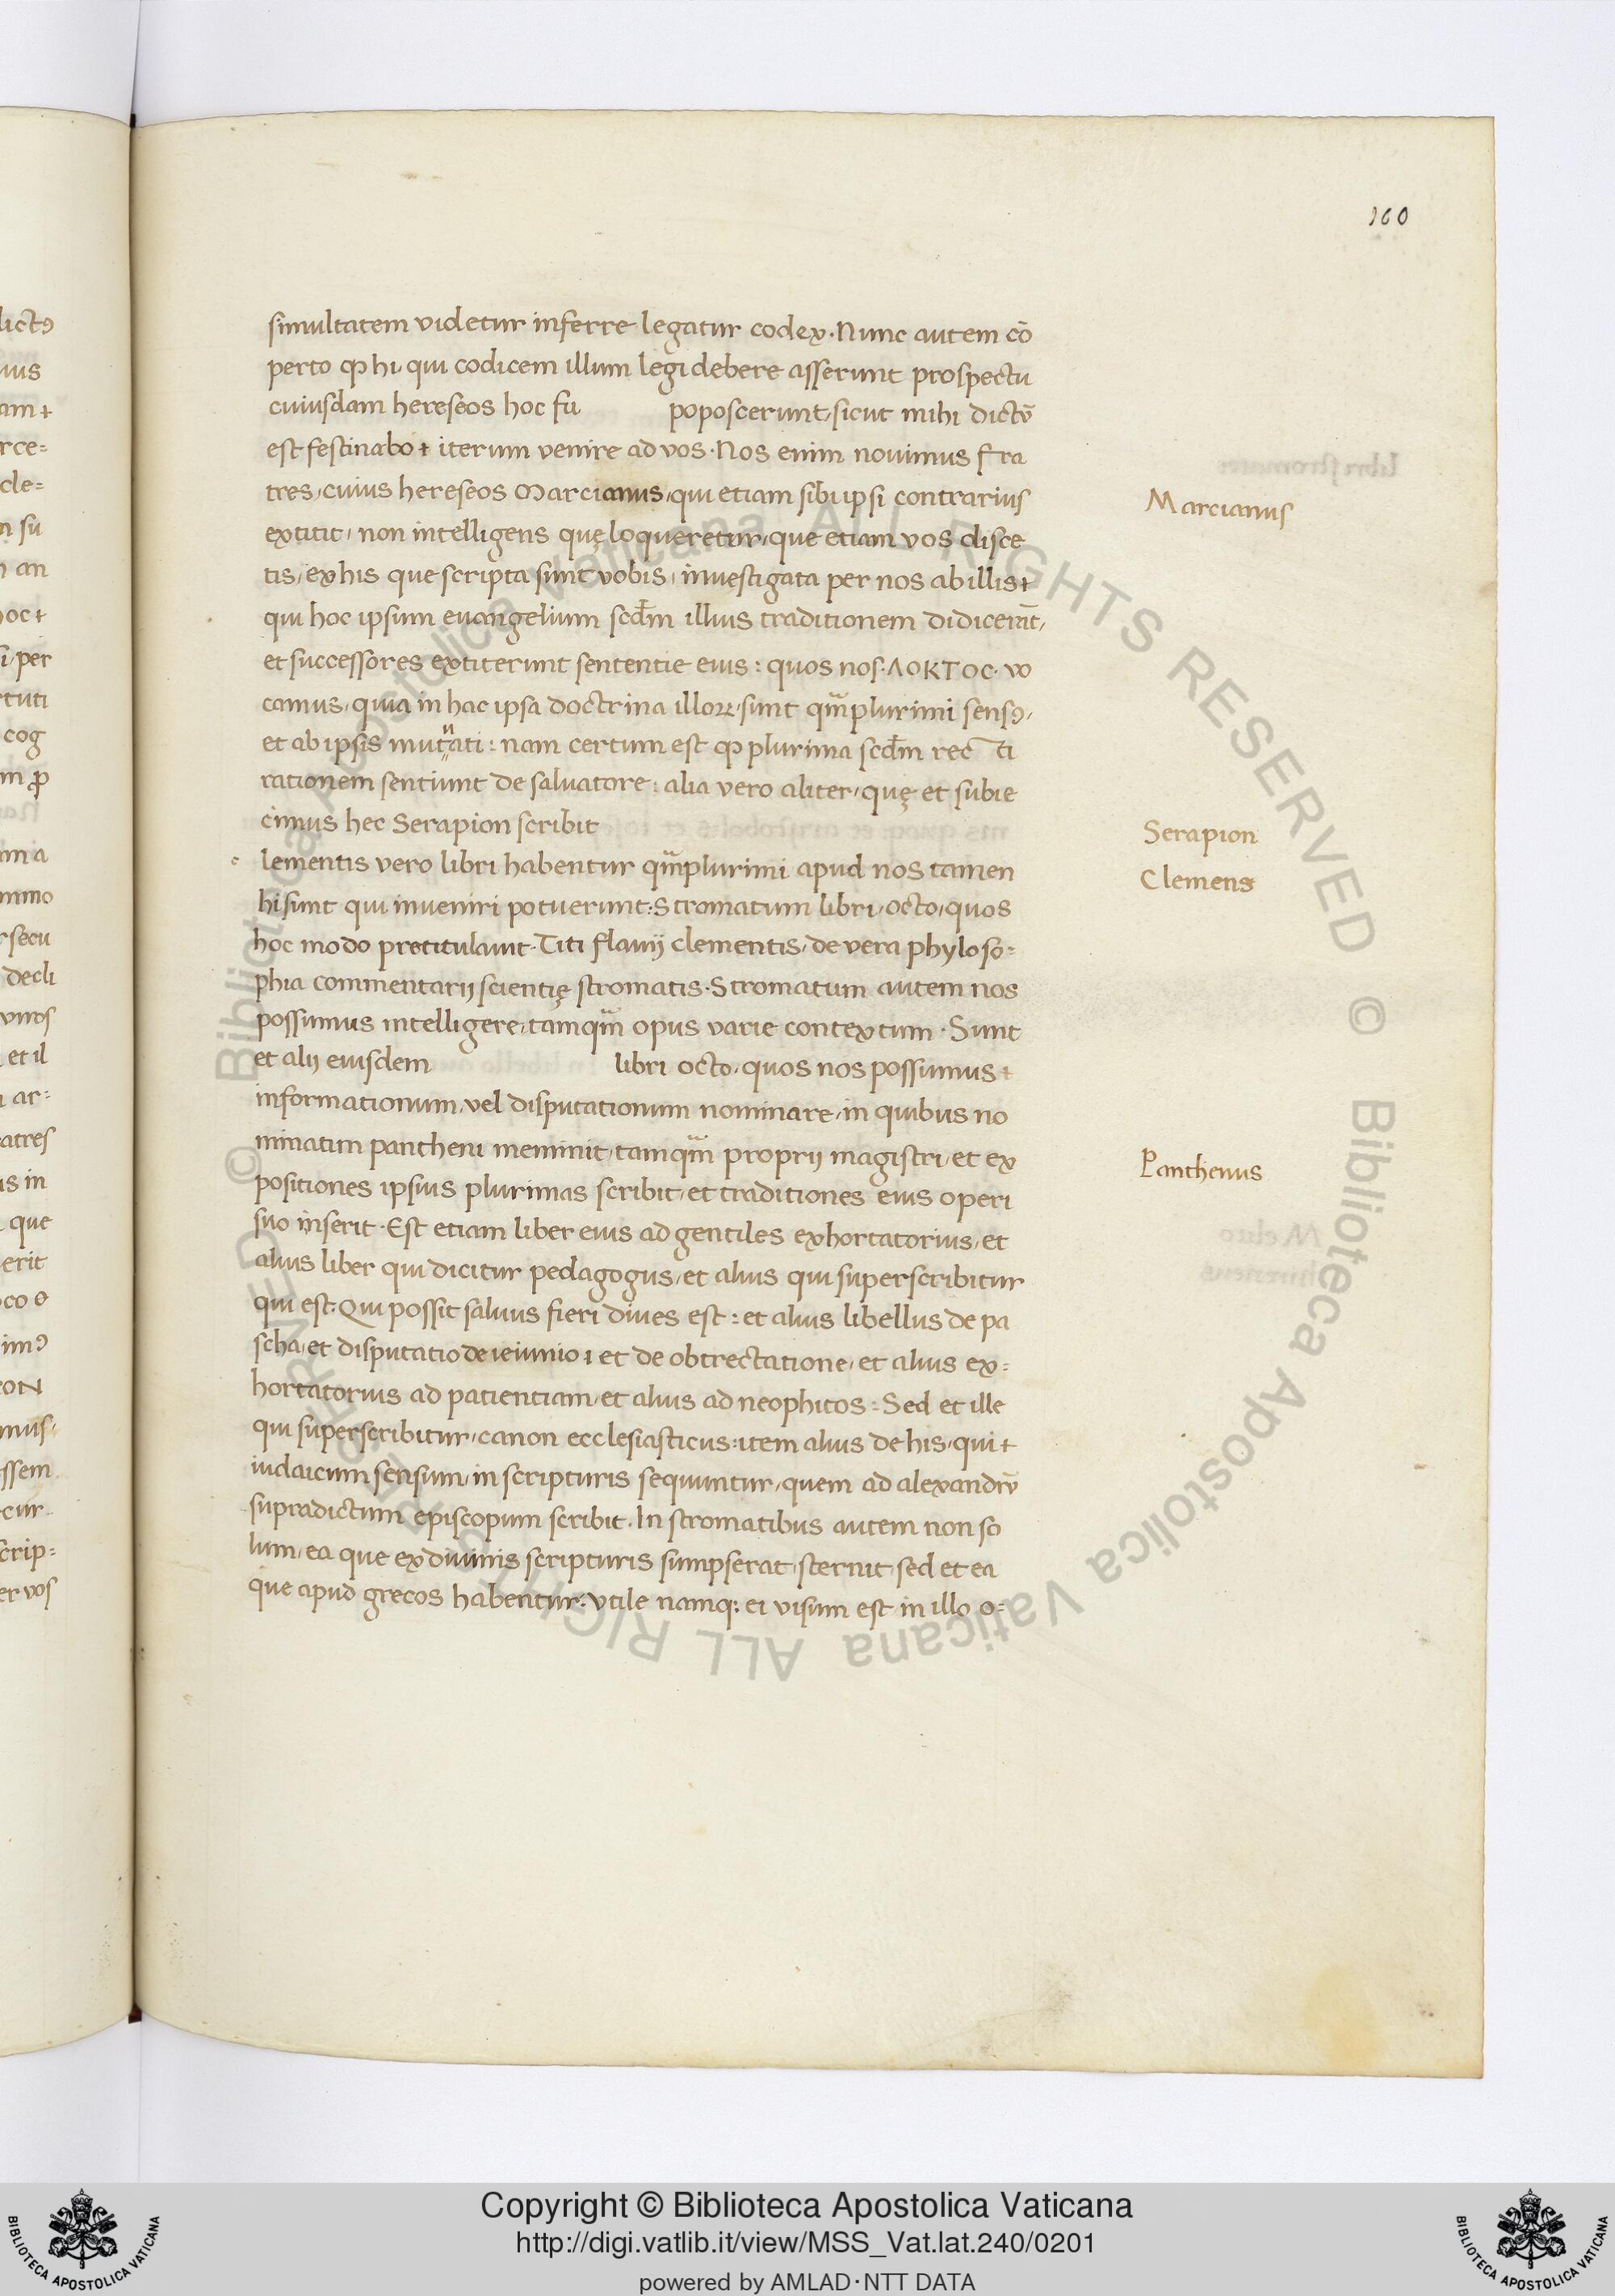 160
simultatem videtur inferre legatur codex · Nunc autem cō
perto ꝙ hi, qui codicem illum legi debere asserunt prospectu
cuiusdam hereseos hoc fu poposcerunt, sicut mihi dictū
est festinabo & iterum venire ad vos · Nos enim novimus fra
tres, cuius hereseos Marcianus, qui etiam sibi ipsi contrarius
extitit, non intelligens quę loqueretur, que etiam vos disce
tis, ex his que scripta sunt vobis, investigata per nos ab illis
qui hoc ipsum euangelium scd̄m illius traditionem didicer̄t,
et successores extiterunt sententie eius : quos nos · ΛΟΚΤΟC · vo
camus, quia in hac ipsa doctrina illoꝝ, sunt qm̄plurimi sensꝯ,
et ab ipsis mutuati : nam certum est ꝙ plurima scd̄m rec ti
rationem sentiunt de salvatore : alia vero aliter, quę et subie
cimus hec Serapion scribit
c lementis vero libri habentur qm̄plurimi apud nos tamen
hi sunt qui inveniri potuerunt : Stromatum libri, octo, quos
hoc modo pretitulavit · Titi flavij clementis, de vera phyloso=
phia commentarij scientię stromatis · Stromatum autem nos
possumus intelligere, tamqm̄ opus varie contextum · Sunt
et alij eiusdem libri octo, quos nos possumus
informationum, vel disputationum nominare, in quibus no
minatim pantheni meminit, tamqm̄ proprij magistri, et ex
positiones ipsius plurimas scribit, et traditiones eius operi
suo inserit · Est etiam liber eius ad gentiles exhortatorius, et
alius liber qui dicitur pedagogus, et alius qui superscribitur
qui est · Qui possit salvus fieri dives est : et alius libellus de pa
scha, et disputatio de ieiunio, et de obtrectatione, et alius ex=
hortatorius ad patientiam, et alius ad neophitos : Sed et ille
qui superscribitur, canon ecclesiasticus : item alius de his, qui
iudaicum sensum, in scripturis sequuntur, quem ad alexandrū
supradictum episcopum scribit · In stromatibus autem non so
lum, ea que ex divinis scripturis sumpserat, sternit, sed et ea
que apud grecos habentur : Utile namq; ei visum est in illo o=
Marcianus
Serapion
Clemens
Panthenus
© Biblioteca Apostolica Vaticana ALL RIGHTS RESERVED © Biblioteca Apostolica Vaticana ALL RIGHTS RESERVED
Copyright © Biblioteca Apostolica Vaticana
http://digi.vatlib.it/view/MSS_Vat.lat.240/0201
powered by AMLAD·NTT DATA
BIBLIOTECA APOSTOLICA VATICANA
BIBLIOTECA APOSTOLICA VATICANA